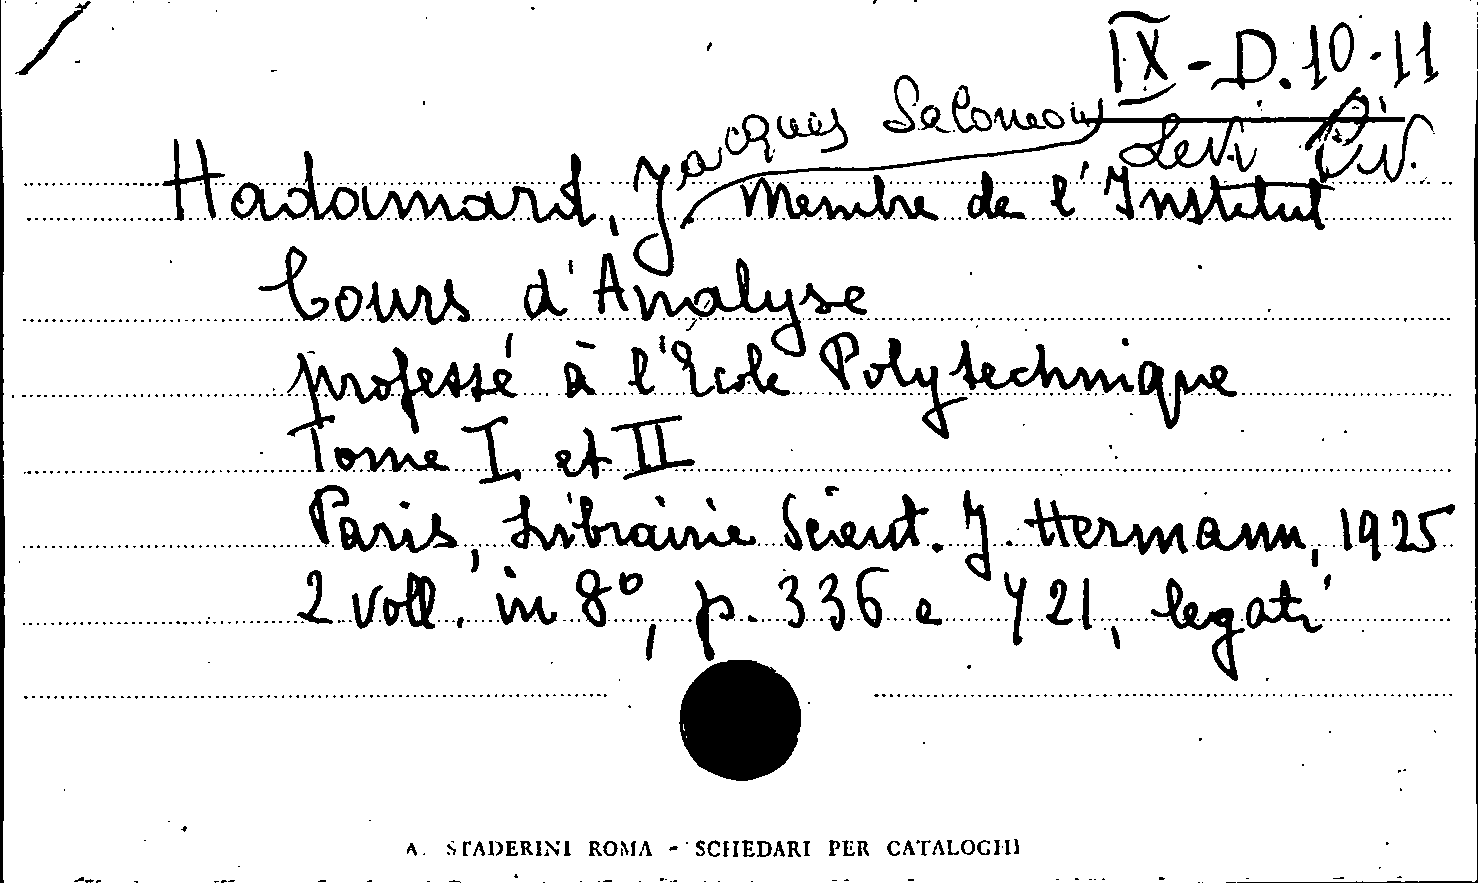 IX - D. 10-11
Levi Civ.
Hadamard, Jacques Salomon Membre de l'Institut
Cours d'Analyse
professé à l'Ecole Polytechnique
Tome I et II
Paris, Librairie Scient. J. Hermann, 1925
2 voll. in 8°, p. 336 e 721, legati
A. STADERINI ROMA - SCHEDARI PER CATALOGHI